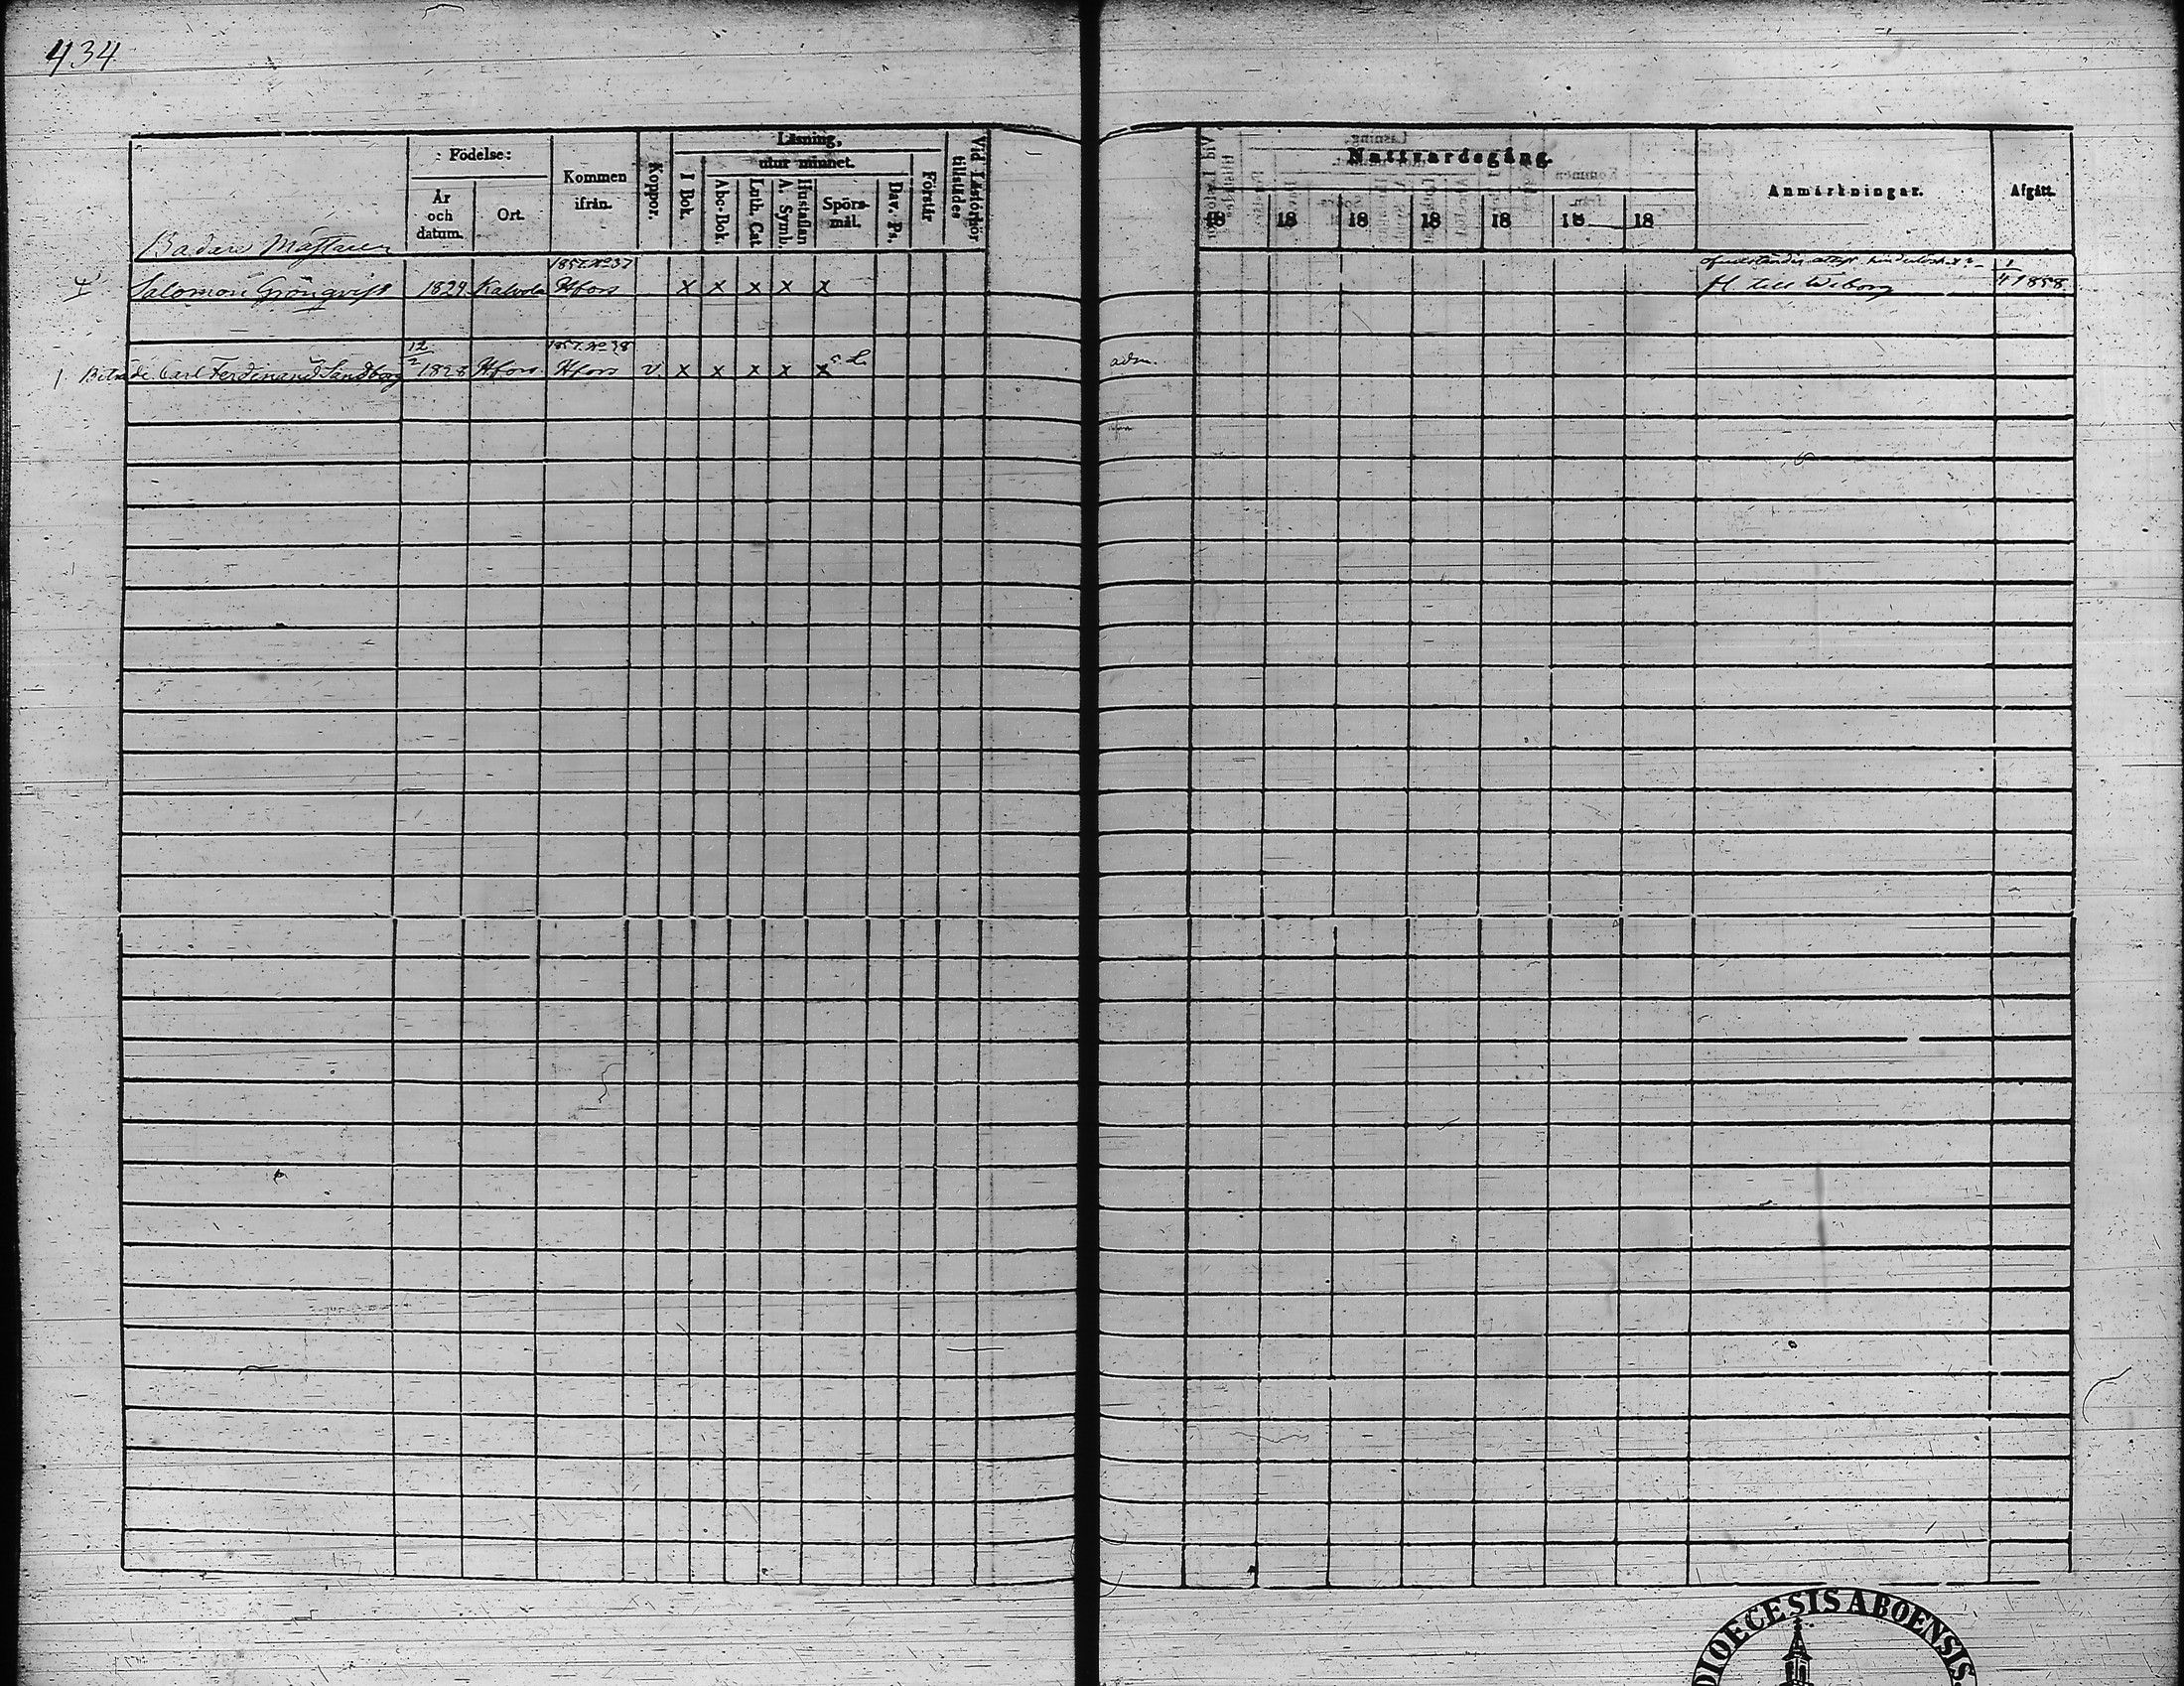 434
Födelse:
År och datum.
Ort.
Kommen ifrån.
Koppor.
Läsning,
utur minnet.
I Bok.
Abc-Bok.
Luth. Cat.
Hustaflan A. Symb.
Spörs-mål.
Dav. Ps.
Förstår.
Vid Läsförhör tillstädes
Nattvardsgång.
18 18 18 18 18 18 18
Anmärkningar.
Afgått.
Badare Mästaren
1857. No 37
Salomon Grönqvist 1829 Kalvola Hfors x x x x x H till Wiborg 1/4 1858.
1857. No 38
1 Biträde Carl Ferdinand Sandborg 12/2 1828 Hfors Hfors v. x x x x x adm.
DIOECESIS ABOENSIS.